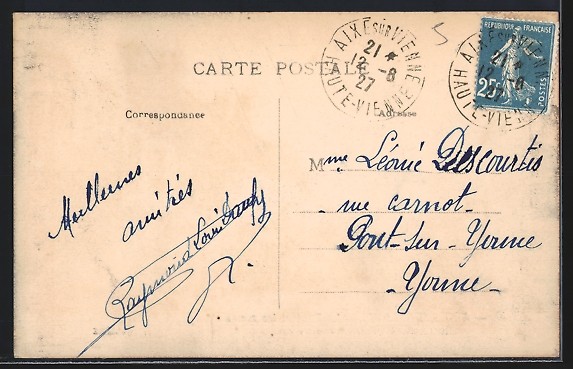 CARTE POSTALE
Correspondance
Adresse
AIXE SUR VIENNE
21 *
12 - 8
27
HAUTE-VIENNE
AIXE SUR VIENNE
21 *
12 - 8
27
HAUTE-VIENNE
REPUBLIQUE FRANÇAISE
25c
POSTES
5
Meilleures
amitiés
Raymond
Mme Léonie Descourtis
rue carnot
Pont-sur-Yonne
Yonne